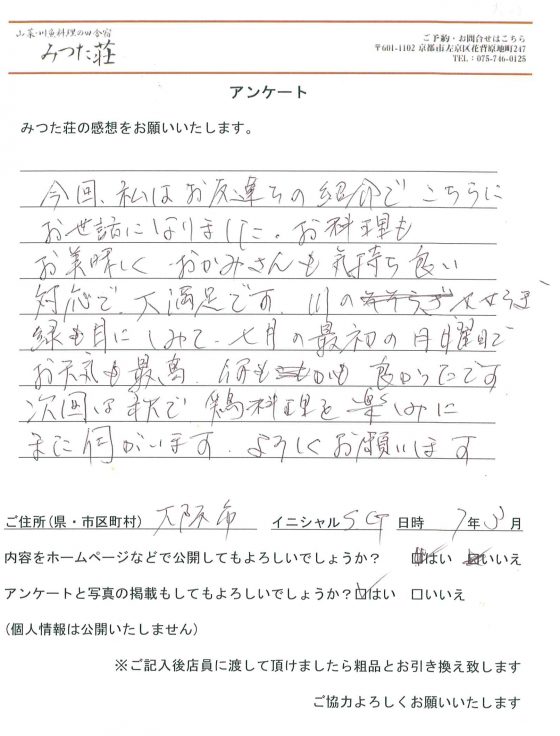 山菜・川魚料理の田舎宿
みつた荘
ご予約・お問合せはこちら
〒601-1102 京都市左京区花背原地町247
TEL：075-746-0125
アンケート
みつた荘の感想をお願いいたします。
今回、私はお友達ちの紹介で こちらに
お世話になりました。お料理も
お美味しく おかみさんも気持ち良い
対応で、大満足です。川の せせらぎ
緑も目にしみて、七月の最初の日曜日で
お天気も最高、何もかも 良かったです
次回は秋で 鶏料理を楽しみに
また伺がいます。よろしくお願いします
ご住所(県・市区町村) 大阪市 イニシャル S G 日時 7年 月
内容をホームページなどで公開してもよろしいでしょうか？ □はい □いいえ
アンケートと写真の掲載もしてもよろしいでしょうか？□はい □いいえ
(個人情報は公開いたしません)
※ご記入後店員に渡して頂けましたら粗品とお引き換え致します
ご協力よろしくお願いいたします